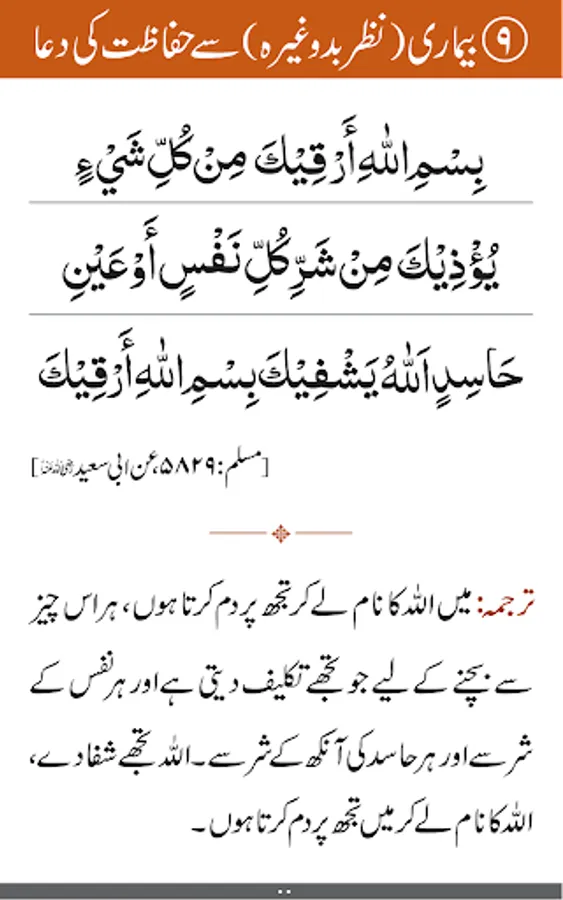 ۹ بیماری (نظر بد وغیرہ) سے حفاظت کی دعا
بِسْمِ اللّٰهِ أَرْقِيْكَ مِنْ كُلِّ شَيْءٍ
يُؤْذِيْكَ مِنْ شَرِّ كُلِّ نَفْسٍ أَوْ عَيْنِ
حَاسِدٍ اَللّٰهُ يَشْفِيْكَ بِسْمِ اللّٰهِ أَرْقِيْكَ
[مسلم: ۵۸۲۹، عن ابی سعید رضی اللہ عنہ]
ترجمہ: میں اللہ کا نام لے کر تجھ پر دم کرتا ہوں، ہر اس چیز
سے بچنے کے لیے جو تجھے تکلیف دیتی ہے اور ہر نفس کے
شر سے اور ہر حاسد کی آنکھ کے شر سے۔ اللہ تجھے شفا دے،
اللہ کا نام لے کر میں تجھ پر دم کرتا ہوں۔